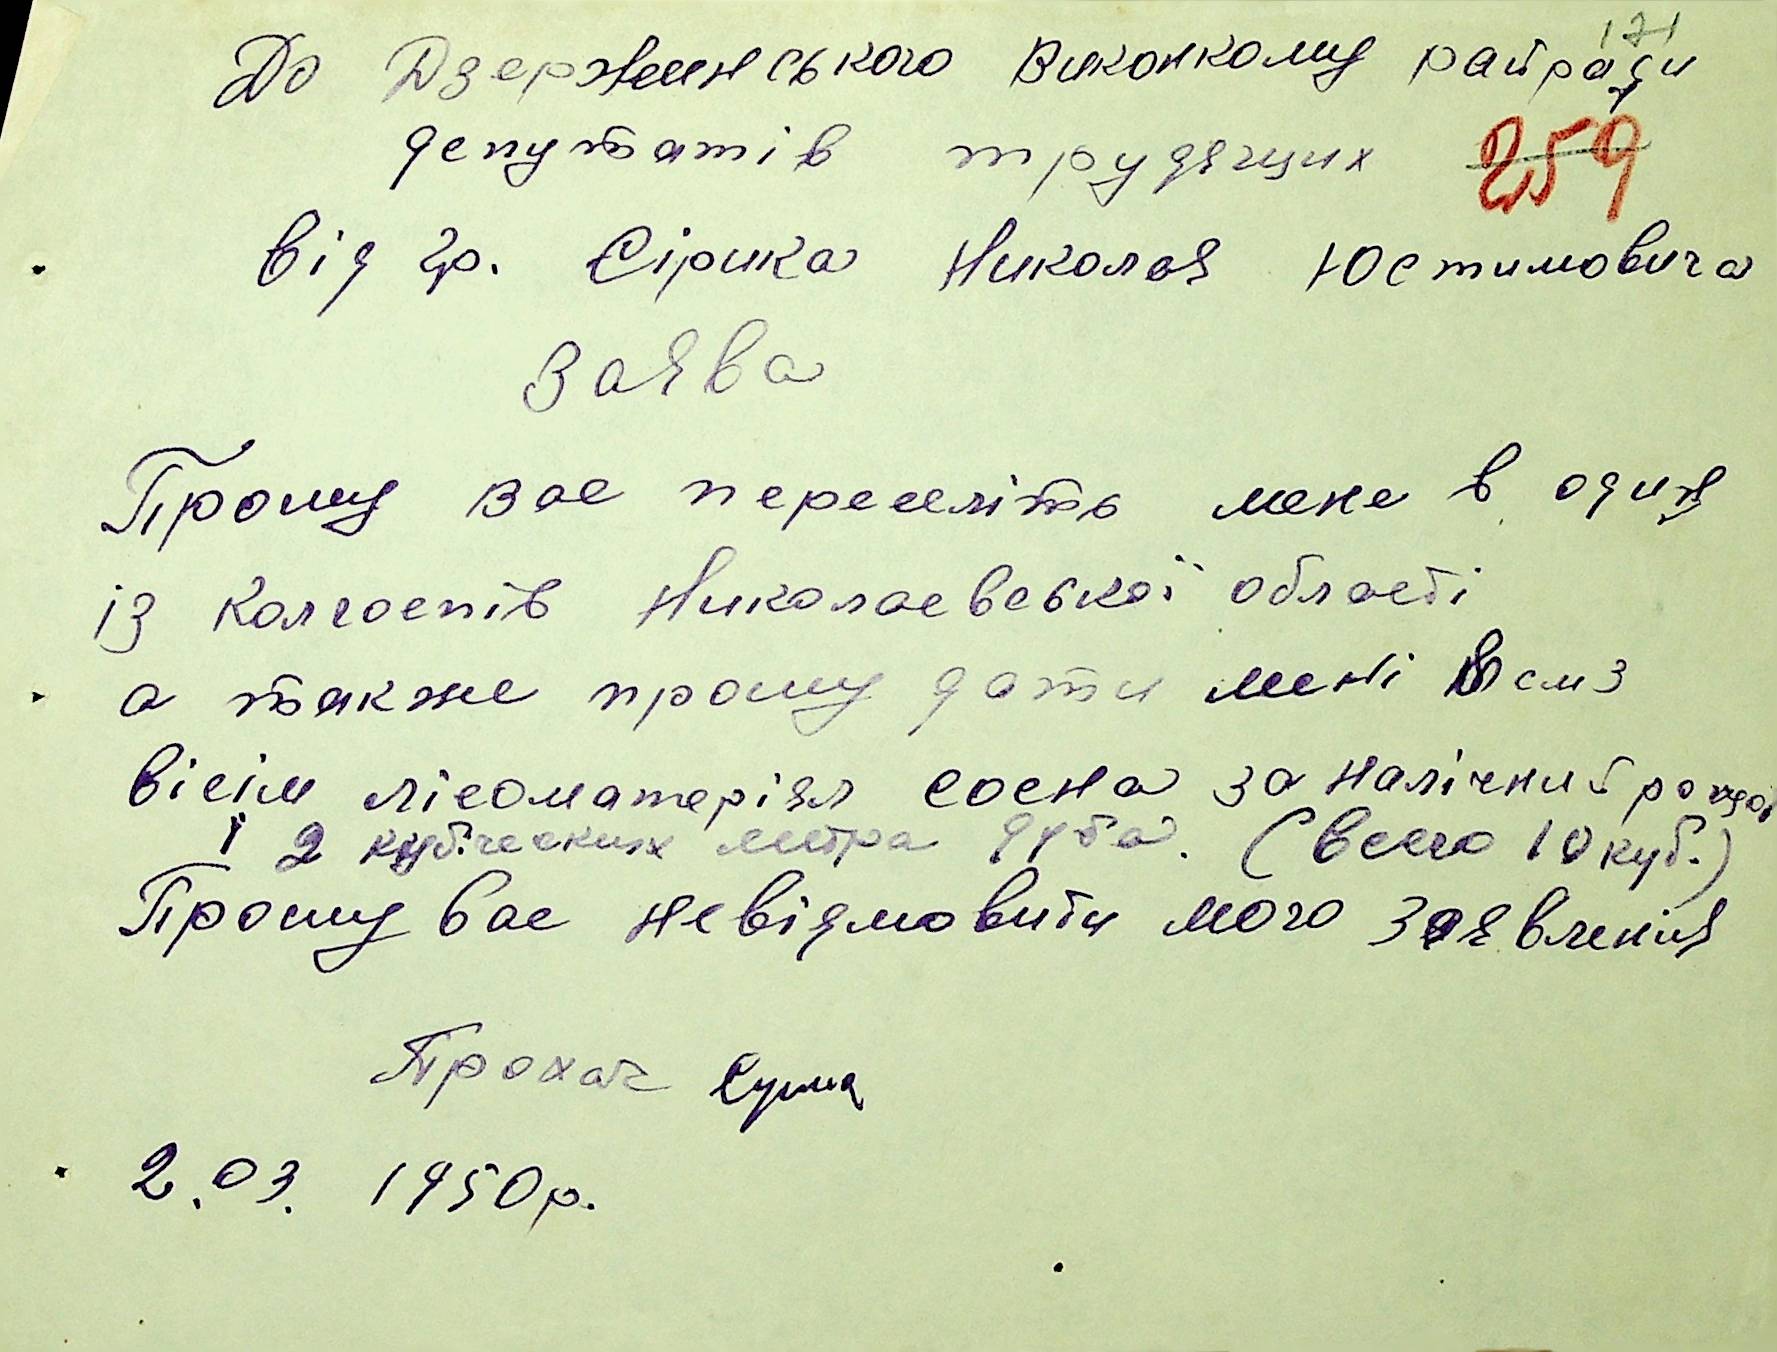 171
До Дзержинського Виконкому райради
депутатів трудящих 259
від гр. Сірика Николая Юстимовича
Заява
Прошу вас переселіть мене в один
із колгоспів Николаевської області
а також прошу дати мені 8 см3
вісім лісоматеріял сосна за налічний
і 2 кубических метра дуба. (Всего 10 куб.)
Прошу вас невідмовити мого заявления
Прохач
2.03. 1950р.